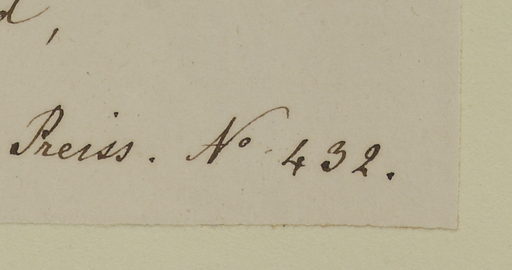 d,
Preiss. No 432.